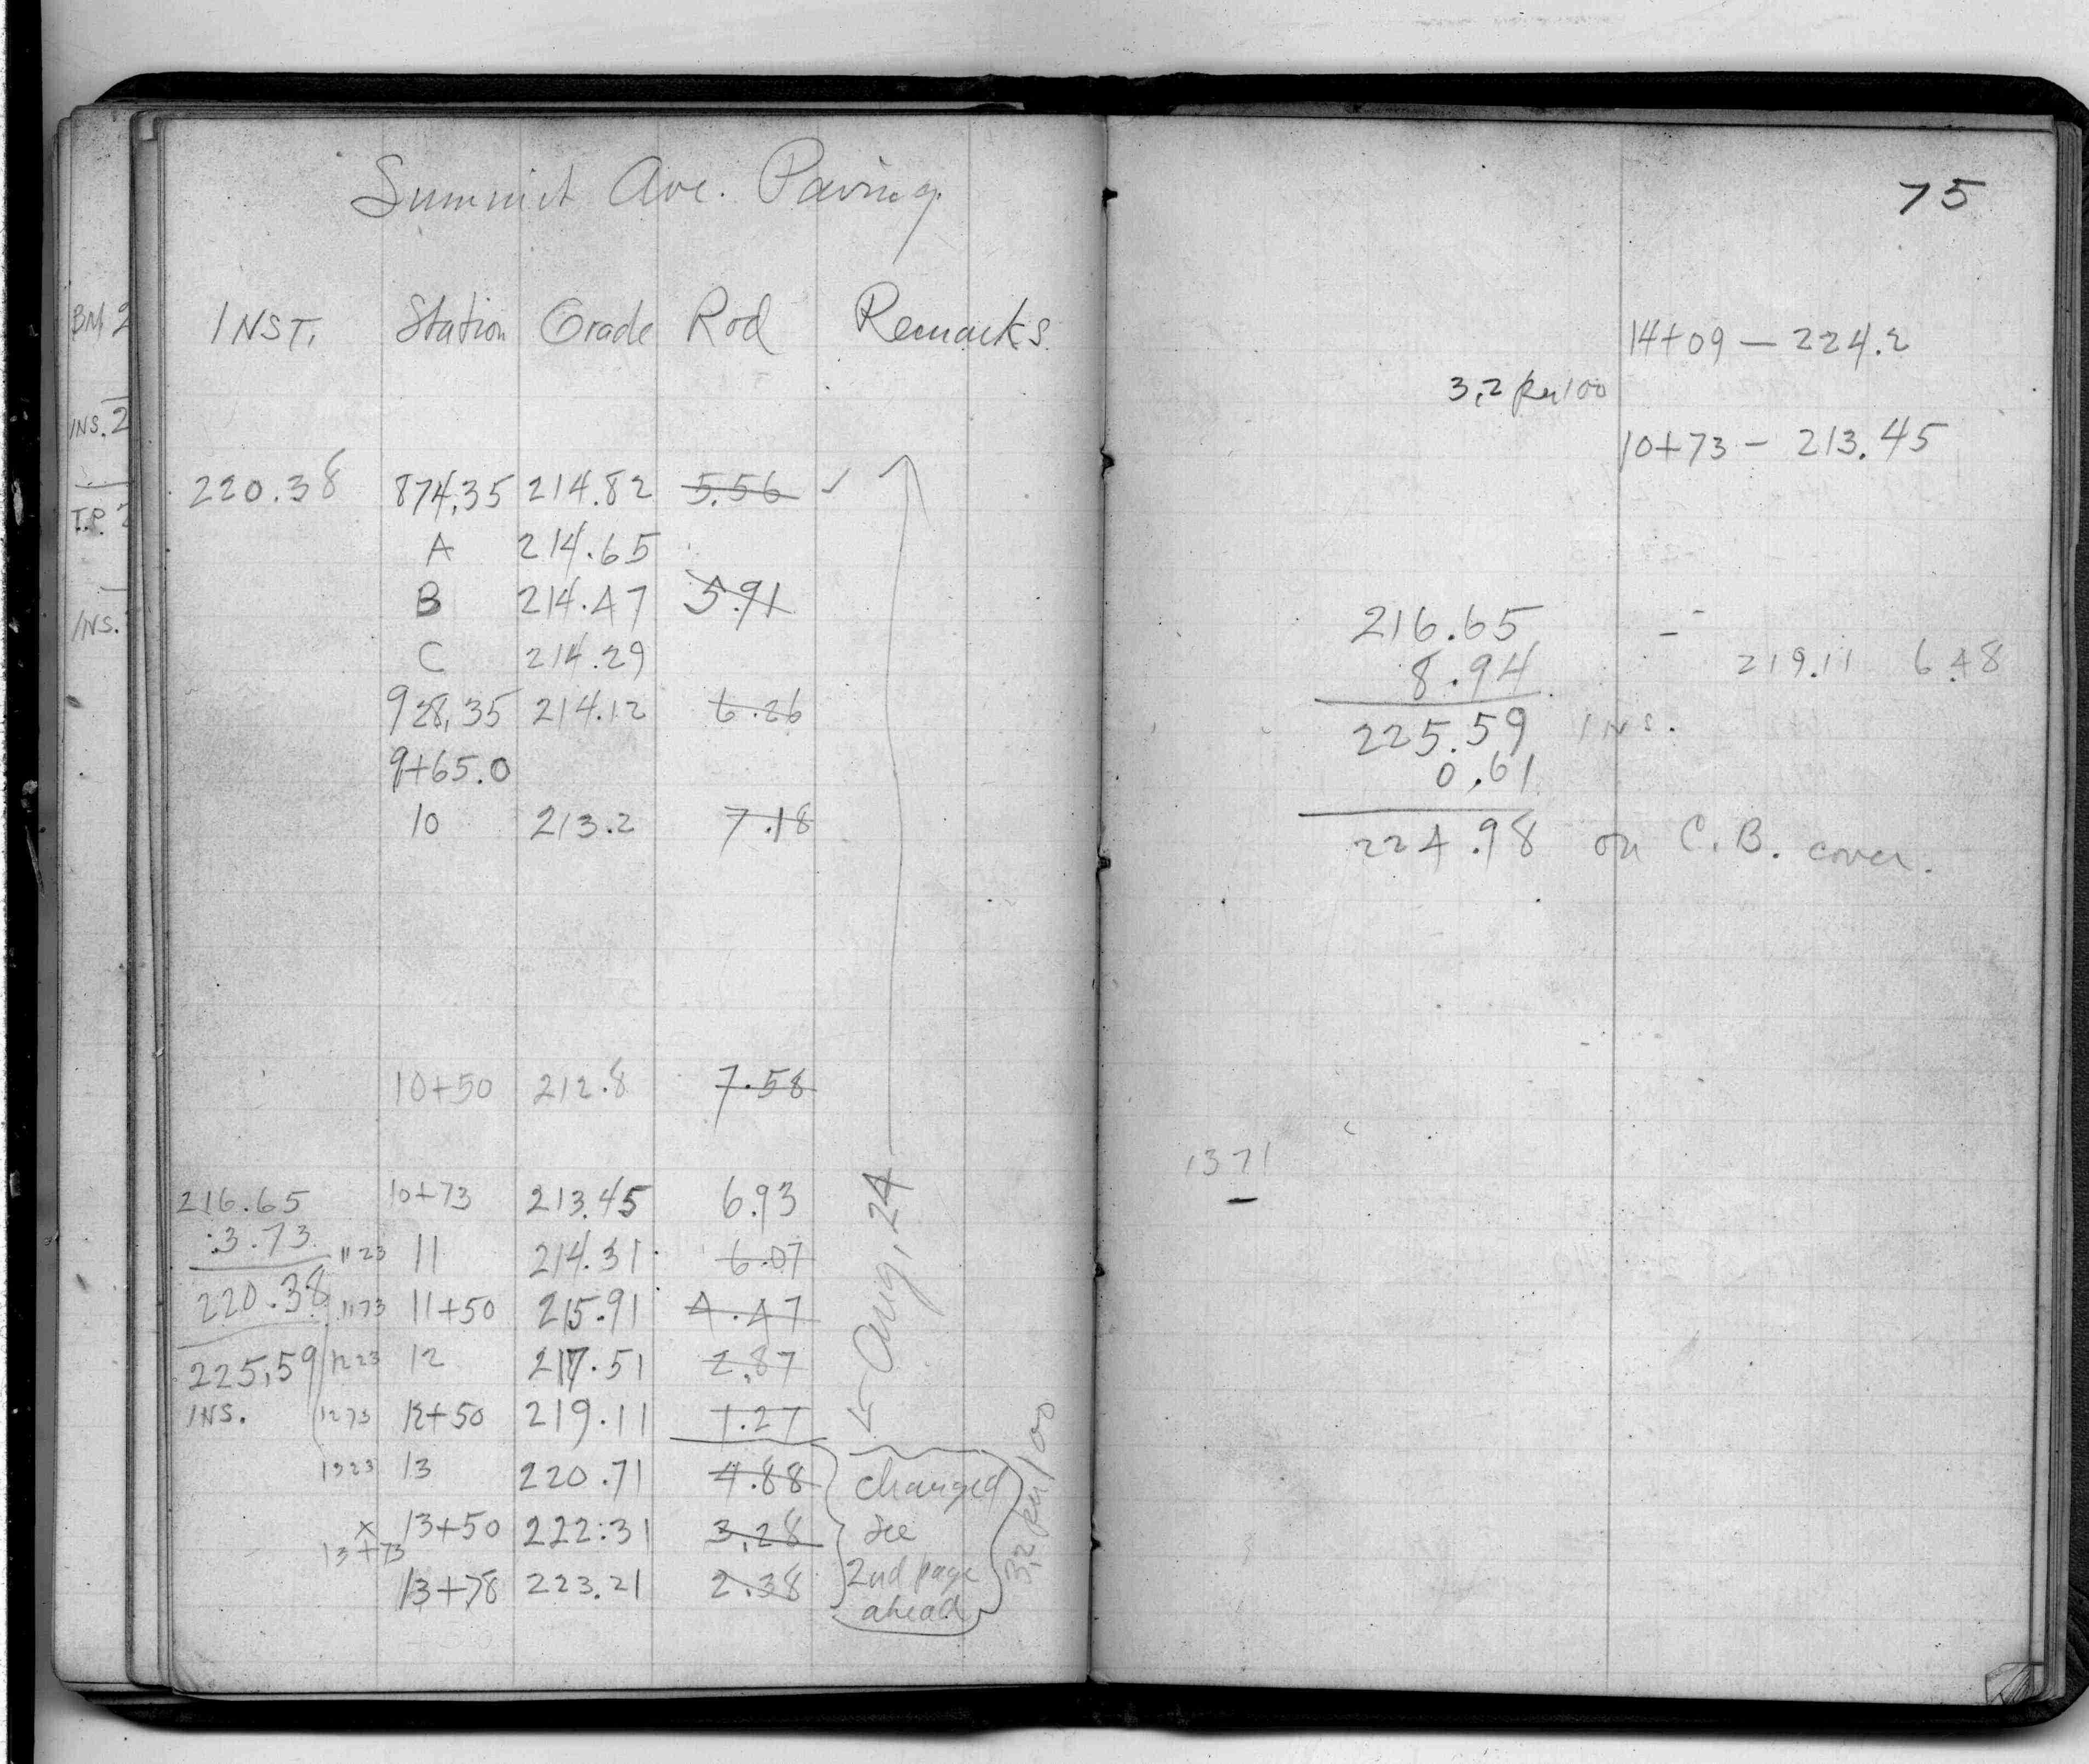 Summit Ave. Paving.
INST. Station Grade Rod Remarks
220.38 874.35 214.82 5.56 ✓
A 214.65
B 214.47 5.91
C 214.29
928.35 214.12 6.26
9+65.0
10 213.2 7.18
10+50 212.8 7.58
216.65 10+73 213.45 6.93
3.73 1123 11 214.31 6.07
220.38 1173 11+50 215.91 4.47
225.59 1223 12 217.51 2.87
INS. 1273 12+50 219.11 1.27
1323 13 220.71 4.88 changed
x 13+50 222.31 3.28 see
13+73
13+78 223.21 2.38 2nd page
ahead
Aug. 24
3.2 per 100
BM 2
INS. 2
T.P. 2
INS.
75
14+09 — 224.2
3.2 per 100
10+73 — 213.45
216.65
8.94 219.11 6.48
225.59 INS.
0.61
224.98 on C.B. cover.
1371